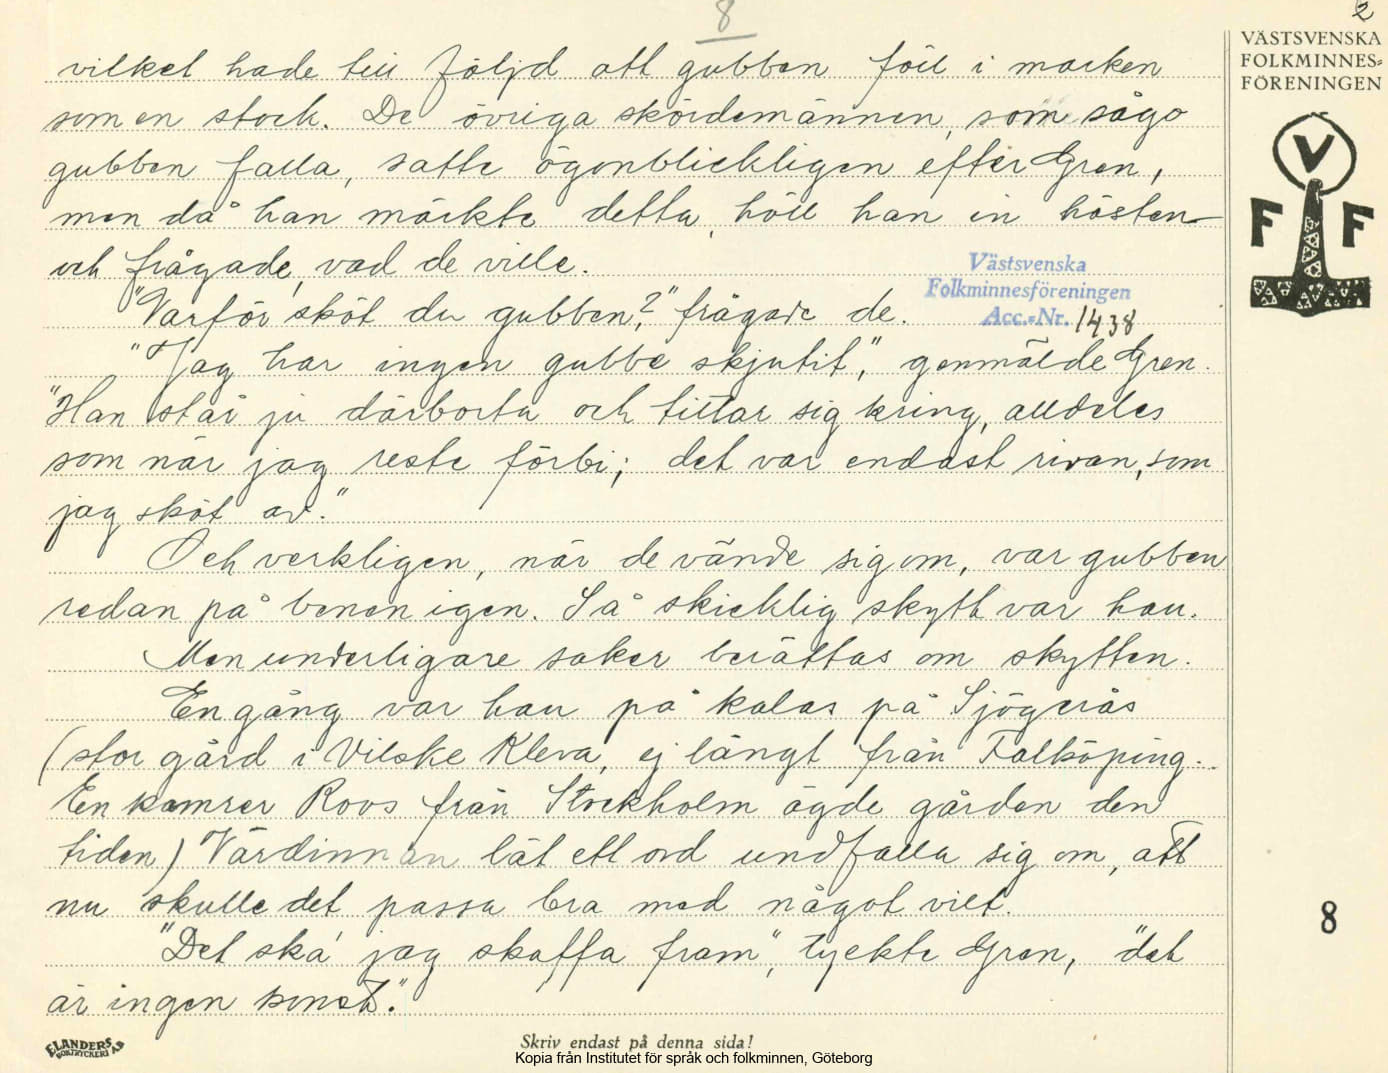 8
2
vilket hade till följd att gubben föll i marken
som en stock. De övriga skördemännen, som sågo
gubben falla, satte ögonblickligen efter Gren,
men då han märkte detta, höll han in hästen
och frågade, vad de ville.
"Varför sköt du gubben?" frågade de.
"Jag har ingen gubbe skjutit", genmälde Gren.
"Han står ju därborta och tittar sig kring, alldeles
som när jag reste förbi; det var endast rivan, som
jag sköt av."
Och verkligen, när de vände sig om, var gubben
redan på benen igen. Så skicklig skytt var han.
Men underligare saker berättas om skytten.
En gång var han på kalas på Sjögerås
(stor gård i Vilske Kleva, ej långt från Falköping.
En kamrer Roos från Stockholm ägde gården den
tiden) Värdinnan lät ett ord undfalla sig om, att
nu skulle det passa bra med något vilt.
"Det ska' jag skaffa fram", tyckte Gren, "det
är ingen konst."
VÄSTSVENSKA
FOLKMINNES-
FÖRENINGEN
V
F F
Västsvenska
Folkminnesföreningen
Acc.-Nr. 1438
8
ELANDERS
BOKTRYCKERI AB
Skriv endast på denna sida!
Kopia från Institutet för språk och folkminnen, Göteborg